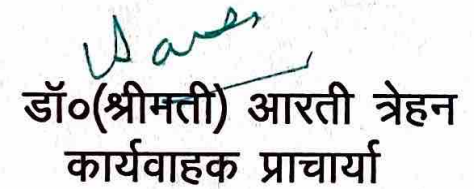 डॉ०(श्रीमती) आरती त्रेहन
कार्यवाहक प्राचार्या